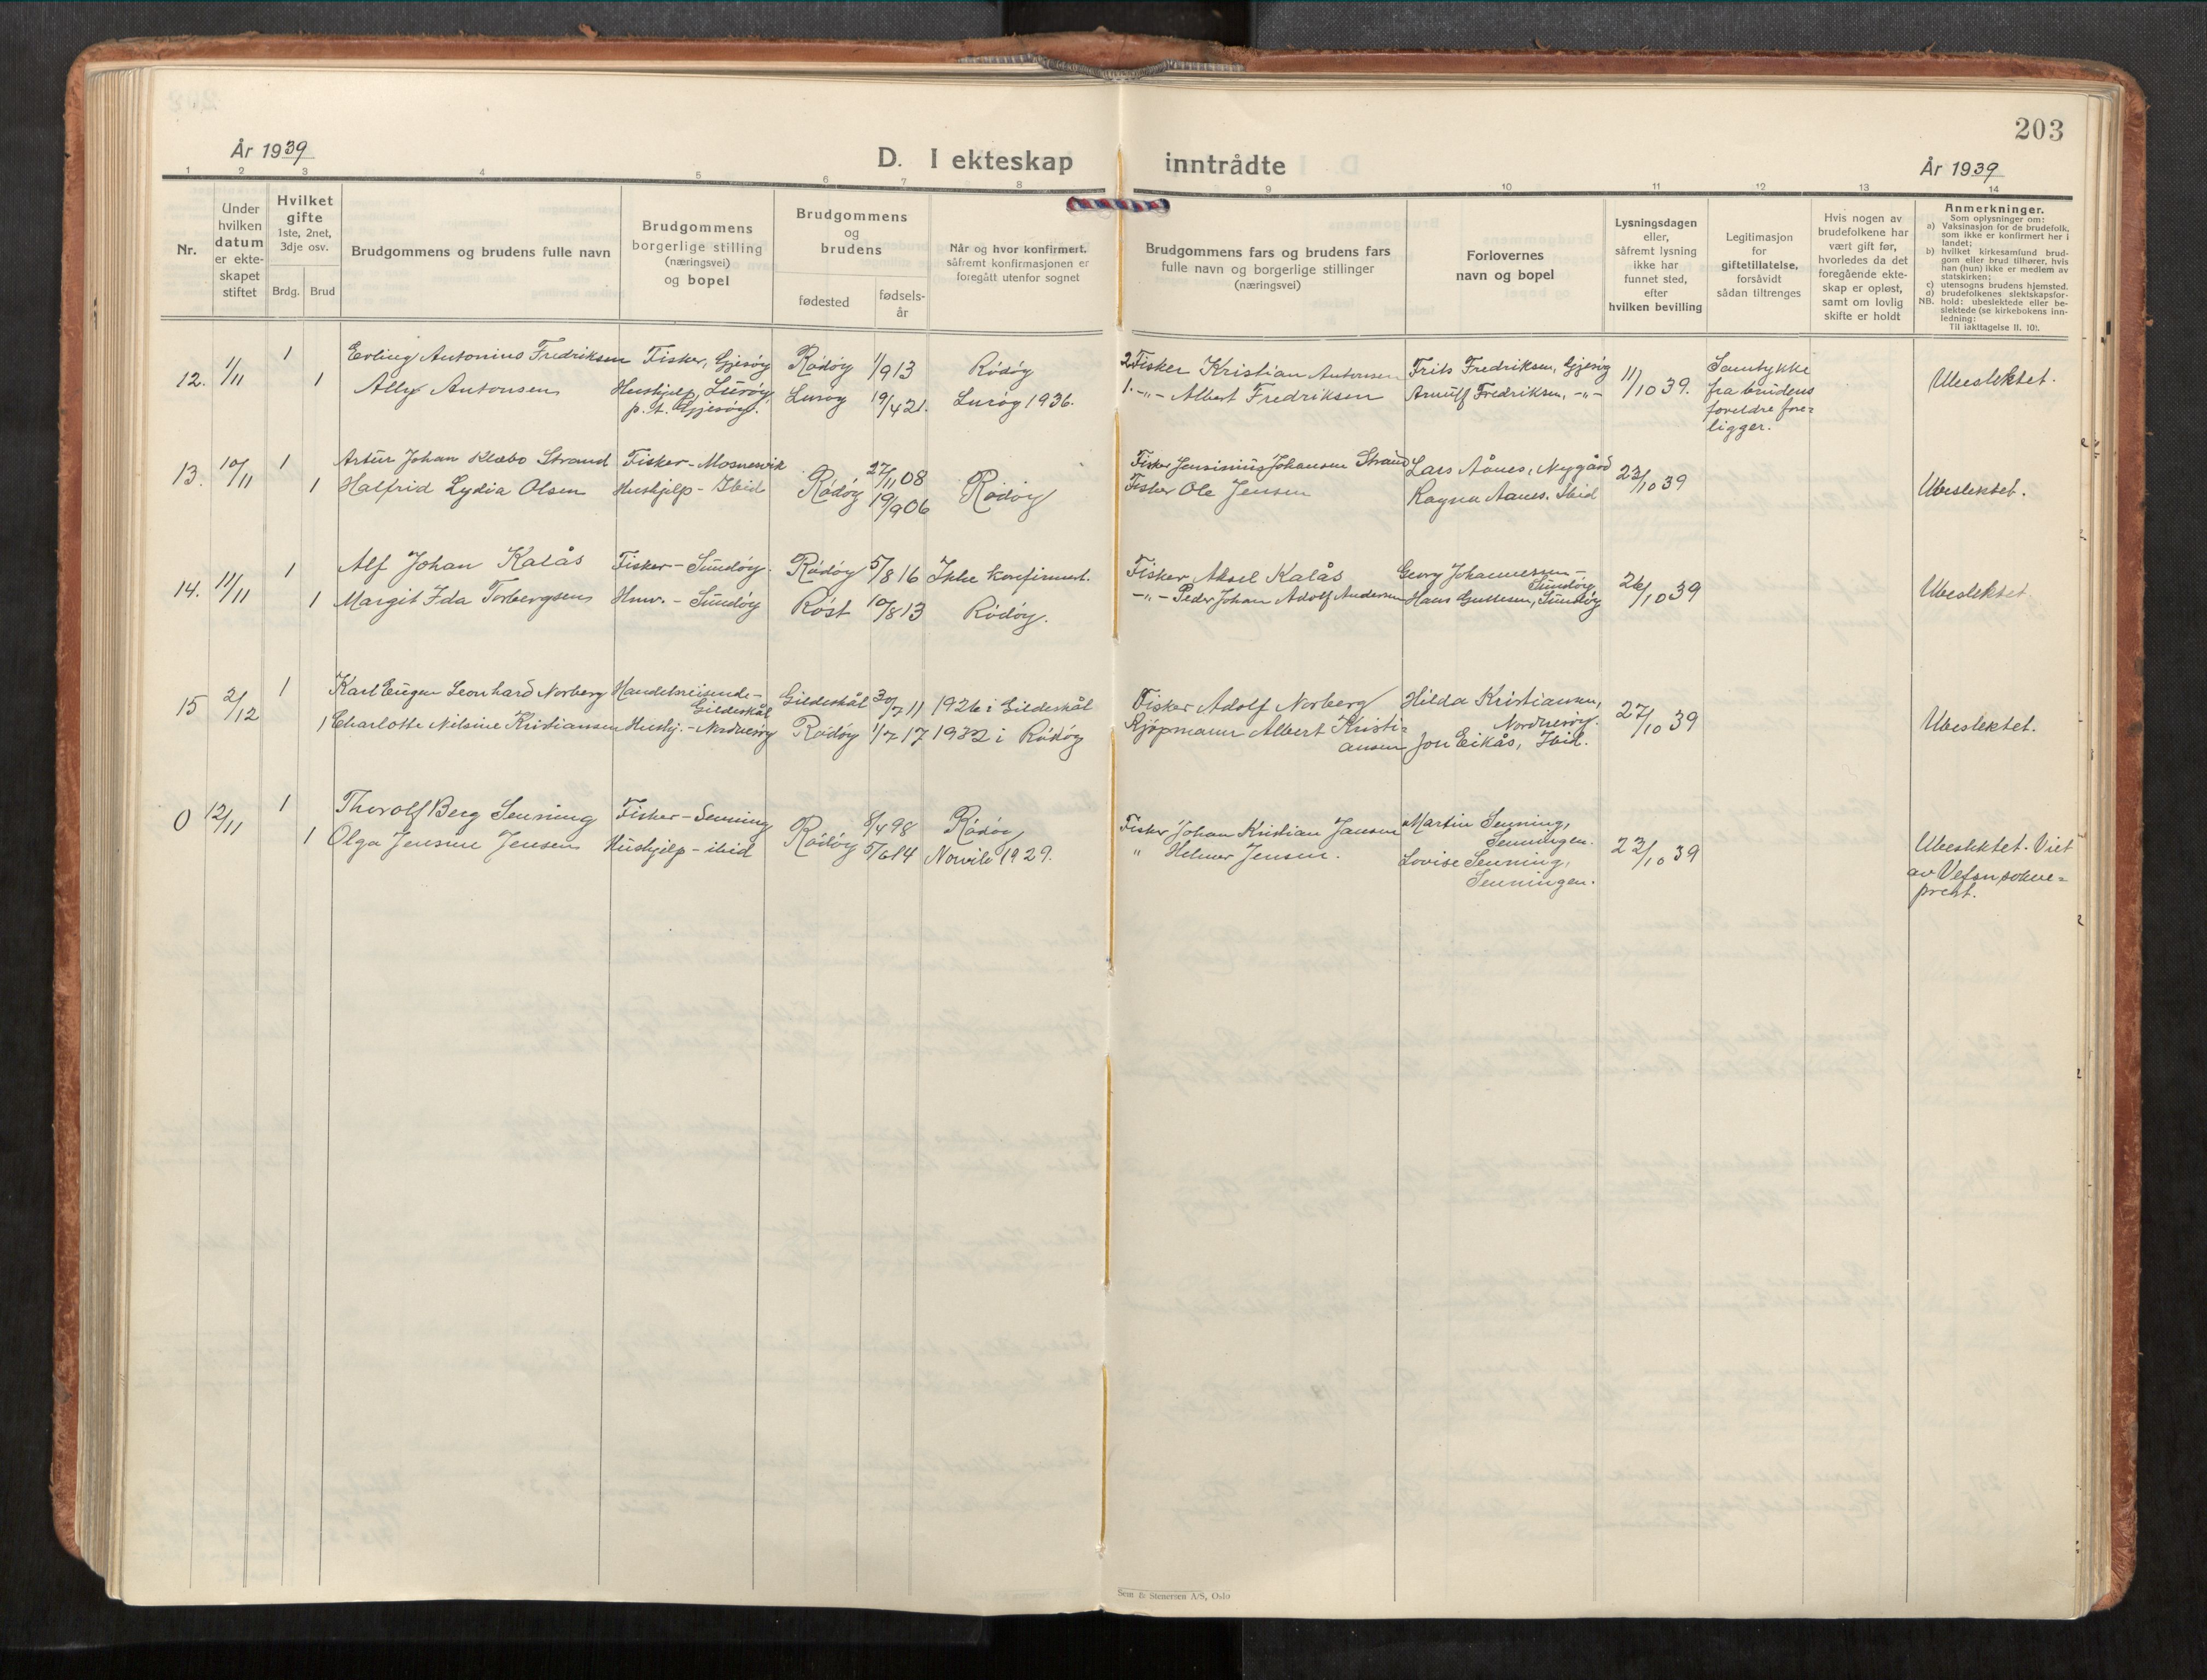 203
År 1939
D. I ekteskap inntrådte
År 1939
1 2 3 4 5 6 7 8 9 10 11 12 13 14
Nr.
Under hvilken datum er ekteskapet stiftet
Hvilket gifte 1ste, 2net, 3dje osv.
Brdg. Brud
Brudgommens og brudens fulle navn
Brudgommens borgerlige stilling (næringsvei) og bopel
Brudgommens og brudens
fødested
fødsels-år
Når og hvor konfirmert, såfremt konfirmasjonen er foregått utenfor sognet
Brudgommens fars og brudens fars fulle navn og borgerlige stillinger (næringsvei)
Forlovernes navn og bopel
Lysningsdagen eller, såfremt lysning ikke har funnet sted, efter hvilken bevilling
Legitimasjon for giftetillatelse, forsåvidt sådan tiltrenges
Hvis nogen av brudefolkene har vært gift før, hvorledes da det foregående ekteskap er opløst, samt om lovlig skifte er holdt
Anmerkninger.
Som oplysninger om:
a) Vaksinasjon for de brudefolk, som ikke er konfirmert her i landet;
b) hvilket kirkesamfund brudgom eller brud tilhører, hvis han (hun) ikke er medlem av statskirken;
c) utensogns brudens hjemsted.
d) brudefolkenes slektskapsforhold: ubeslektede eller beslektede (se kirkebokens innledning:
NB.
Til iakttagelse II. 10).
12. 1/11 1 Erling Antonius Fredriksen Fisker, Gjesøy Rødøy 1/9 13 Rødøy 2 Fisker Kristian Antonsen Frits Fredriksen, Gjesøy 11/10 39. Samtykke fra brudens foreldre fore=ligger. Ubeslektet.
1 Ally Antonsen Hushjelp, Lurøy p.t. Gjesøy. Lurøy 19/4 21. Lurøy 1936. 1. -"- Albert Fredriksen Arnulf Fredriksen, -"-
13. 10/11 1 Artur Johan Klæbo Strand Fisker - Mosnesvik Rødøy 27/11 08 Rødøy Fisker Jensinius Johansen Strand Lars Aanes, Nygård 23/10 39 Ubeslektet.
1 Halfrid Lydia Olsen Hushjelp - Ibid 19/9 06 Fisker Ole Jensen Ragna Aanes. Ibid
14. 11/11 1 Alf Johan Kalås Fisker - Sundøy. Rødøy 5/8 16 Ikke konfirmert. Fisker Aksel Kalås Georg Johannessen - Sundøy 26/10 39 Ubeslektet.
1 Margit Ida Torbergsen Hmv. - Sundøy Røst 10/8 13 Rødøy. -"- Peder Johan Adolf Andersen Hans Gullesen, Sundøy
15 2/12 1 Karl Eugen Leonhard Norberg Handelsreisende - Gildeskål Gildeskål 30/7 11 1926 i Gildeskål Fisker Adolf Norberg Hilda Kristiansen, Nordnesøy. 27/10 39 Ubeslektet.
1 Charlotte Nilsine Kristiansen Hushj. - Nordnesøy Rødøy 1/7 17 1932 i Rødøy Kjøpmann Albert Kristi=ansen Jon Eikås, Ibid.
0 12/11 1 Thorolf Berg Senning Fisker - Senning Rødøy 8/4 98 Rødøy Fisker Johan Kristian Jansen Martin Senning, Senningen. 23/10 39 Ubeslektet. Viet av Vefsn sokne=prest.
1 Olga Jensine Jensen Hushjelp - ibid 5/6 14 1929. " Helmer Jensen. Lovise Senning, Senningen.
Sem & Stenersen A/S, Oslo